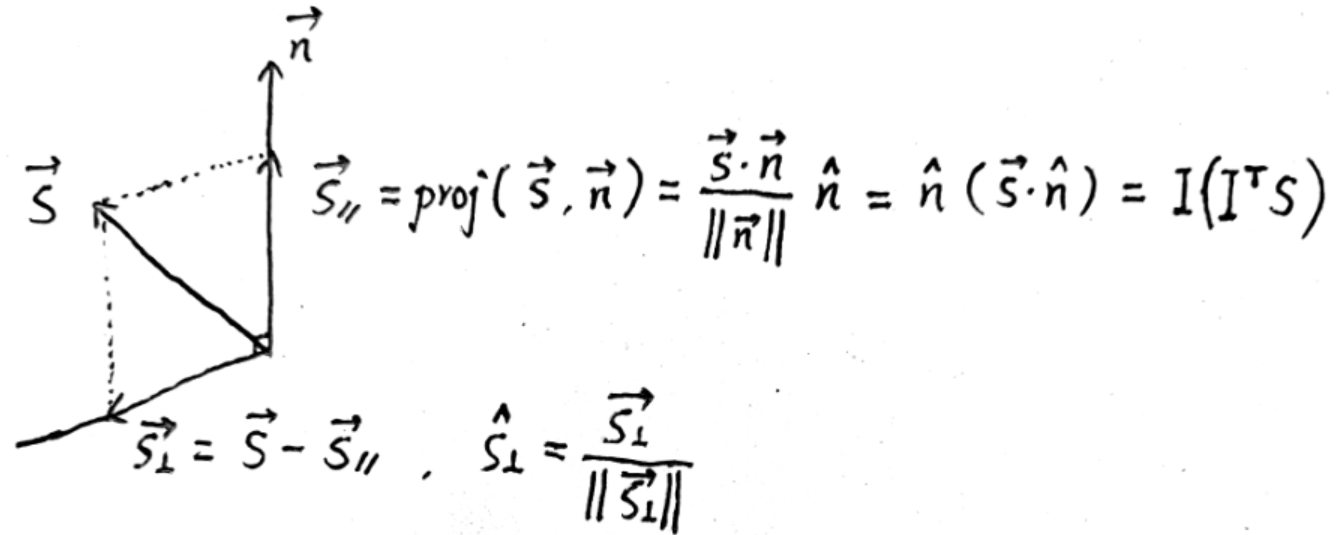 n⃗
S⃗
S⃗// = proj(S⃗, n⃗) = (S⃗·n⃗)/||n⃗|| n̂ = n̂(S⃗·n̂) = I(IᵀS)
S⃗⊥ = S⃗ - S⃗// , Ŝ⊥ = S⃗⊥/||S⃗⊥||